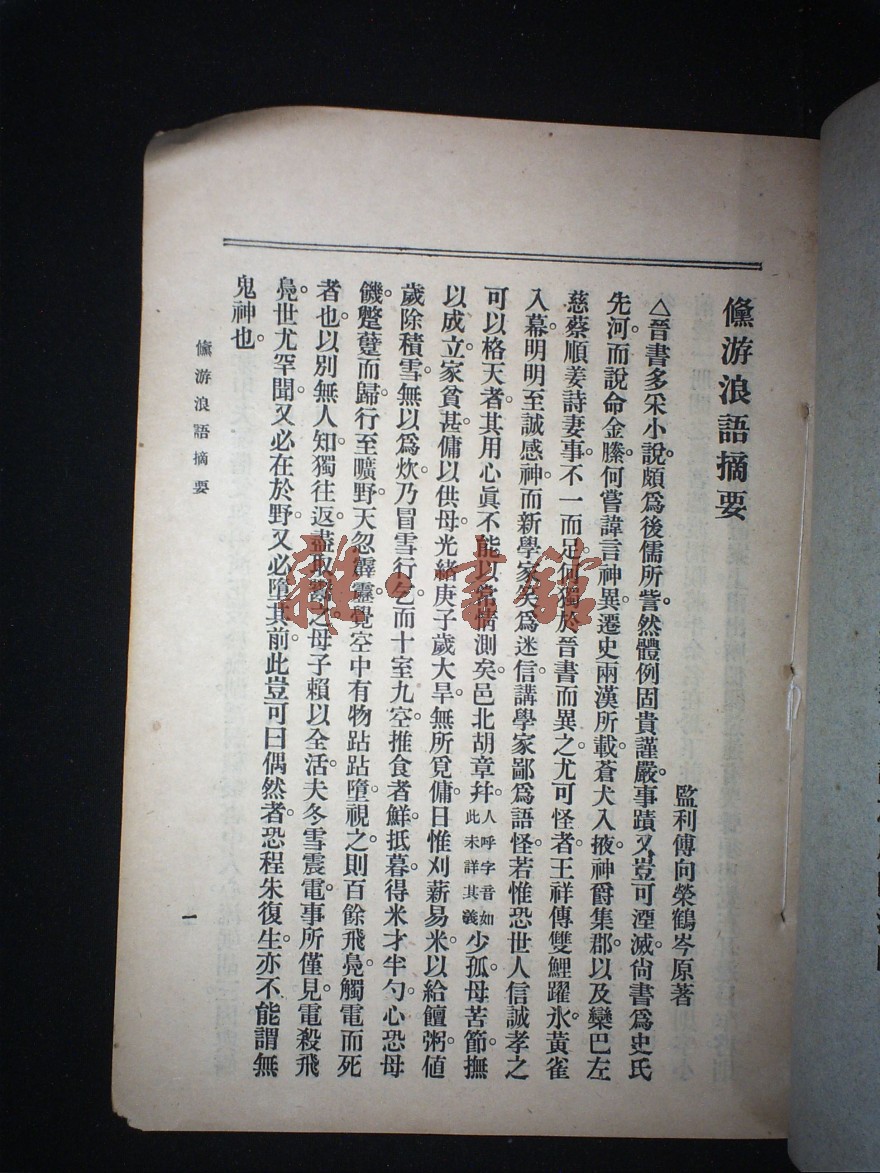 儻游浪語摘要
監利傅向榮鶴岑原著
△晉書多采小說。頗爲後儒所訾。然體例固貴謹嚴。事蹟又豈可湮滅。尚書爲史氏
先河。而說命金縢。何嘗諱言神異。遷史兩漢所載。蒼犬入掖。神爵集郡。以及欒巴左
慈蔡順姜詩妻事。不一而足。何獨於晉書而異之。尤可怪者。王祥傳雙鯉躍氷。黃雀
入幕。明明至誠感神。而新學家矢爲迷信。講學家鄙爲語怪。若惟恐世人信誠孝之
可以格天者。其用心眞不能以常情測矣。邑北胡章幷人呼字音如此未詳其義少孤。母苦節。撫
以成立。家貧甚。傭以供母。光緒庚子歲大旱。無所覓傭。日惟刈薪易米以給饘粥。値
歲除積雪。無以爲炊。乃冒雪行乞。而十室九空。推食者鮮。抵暮得米才半勺。心恐母
饑。蹩躠而歸。行至曠野。天忽霹靂。覺空中有物跕跕墮。視之。則百餘飛鳧觸電而死
者也。以別無人知。獨往返盡取鬻之。母子賴以全活。夫冬雪震電。事所僅見。電殺飛
鳧。世尤罕聞。又必在於野。又必墮其前。此豈可曰偶然者。恐程朱復生。亦不能謂無
鬼神也。
儻游浪語摘要
一
雜·書館